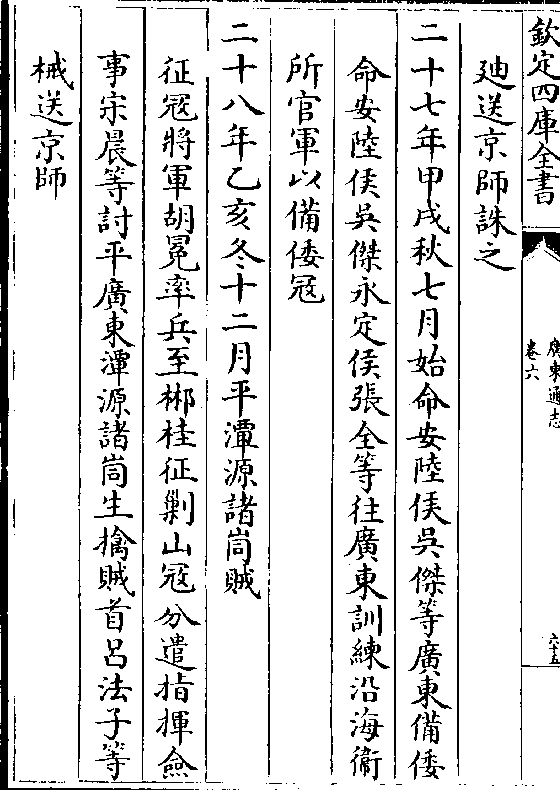 欽定四庫全書
廣東通志
卷六
六十五
廸送京師誅之
二十七年甲戌秋七月始命安陸侯吳傑等廣東備倭
命安陸侯吳傑永定侯張全等往廣東訓練沿海衞
所官軍以備倭冦
二十八年乙亥冬十二月平潭源諸峝賊
征冦將軍胡冕率兵至郴桂征剿山冦分遣指揮僉
事宋晨等討平廣東潭源諸峝生擒賊首吕法子等
械送京師